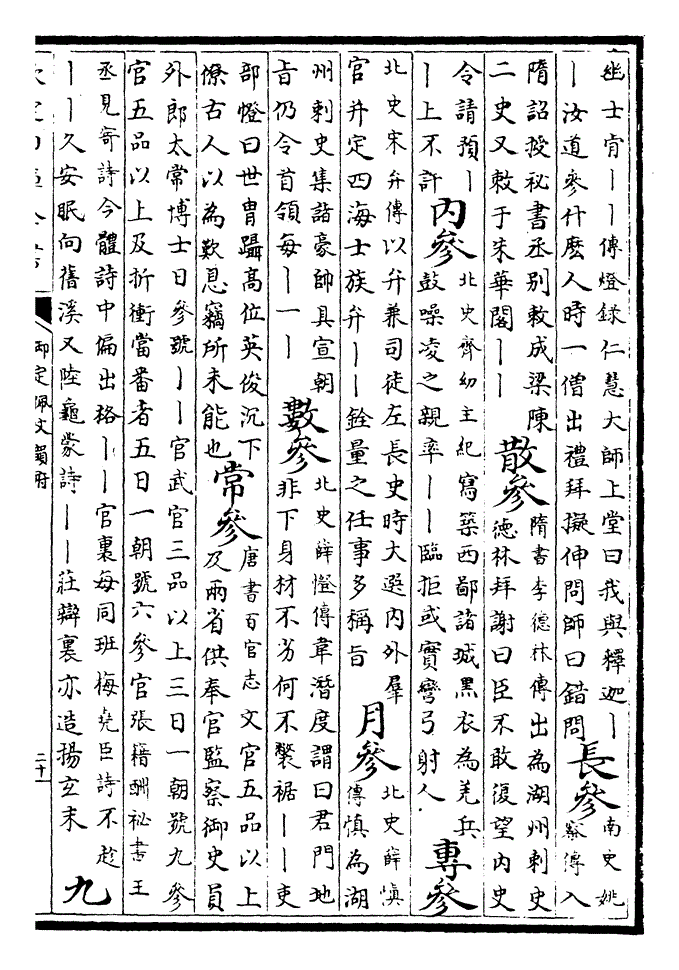 幽士肯丨丨傳燈錄仁慧大師上堂曰我與釋迦丨
丨汝道參什麽人時一僧出禮拜擬伸問師曰錯問
長參
南史姚
察傳入
隋詔授秘書丞别敕成梁陳
二史又敕于朱華閣丨丨
散參
隋書李德林傳出為湖州刺史
德林拜謝曰臣不敢復望内史
令請預丨
丨上不許
内參
北史齊幼主紀寫築西鄙諸城黑衣為羌兵
鼓噪凌之親率丨丨臨拒或實彎弓射人
專參
北史宋弁傳以弁兼司徒左長史時大選内外羣
官并定四海士族弁丨丨銓量之任事多稱旨
月參
北史薛慎
傳慎為湖
州刺史集諸豪帥具宣朝
旨仍令首領每丨一丨
數參
北史薛憕傳韋潛度謂曰君門地
非下身材不劣何不褧裾丨丨吏
部憕曰世胄躡高位英俊沉下
僚古人以為歎息竊所未能也
常參
唐書百官志文官五品以上
及兩省供奉官監察御史員
外郎太常博士日參號丨丨官武官三品以上三日一朝號九參
官五品以上及折衝當番者五日一朝號六參官張籍酬秘書王
丞見寄詩今體詩中偏出格丨丨官裏每同班梅堯臣詩不趁
丨丨久安眠向舊溪又陸龜蒙詩丨丨莊辯裏亦造揚玄末
九
欽定四庫全書
御定佩文韻府
二十